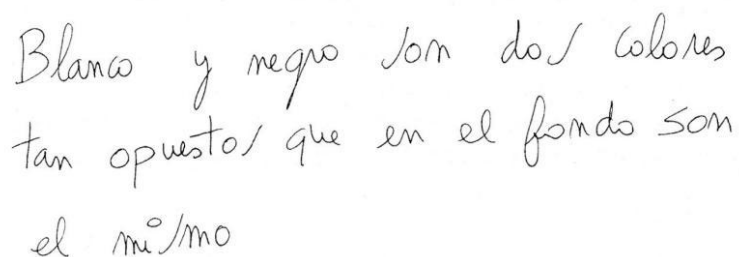 Blanco y negro son dos colores
tan opuestos que en el fondo son
el mismo